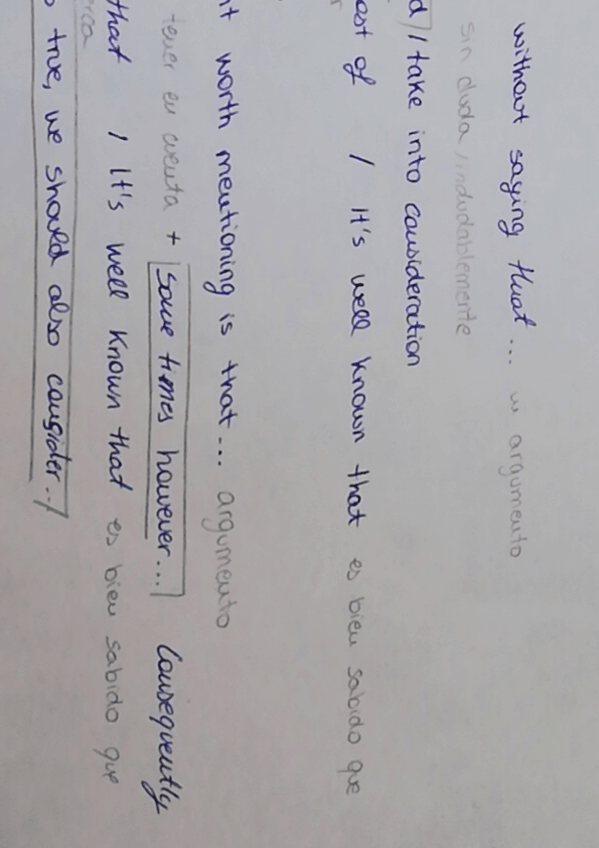 without saying that... w argumento
sin duda, indudablemente
d / take into consideration
est of / It's well known that es bien sabido que
nt worth mentioning is that... argumento
tener en cuenta + some times however... / Consequently
that / It's well known that es bien sabido que
erca
o true, we should also consider.. /